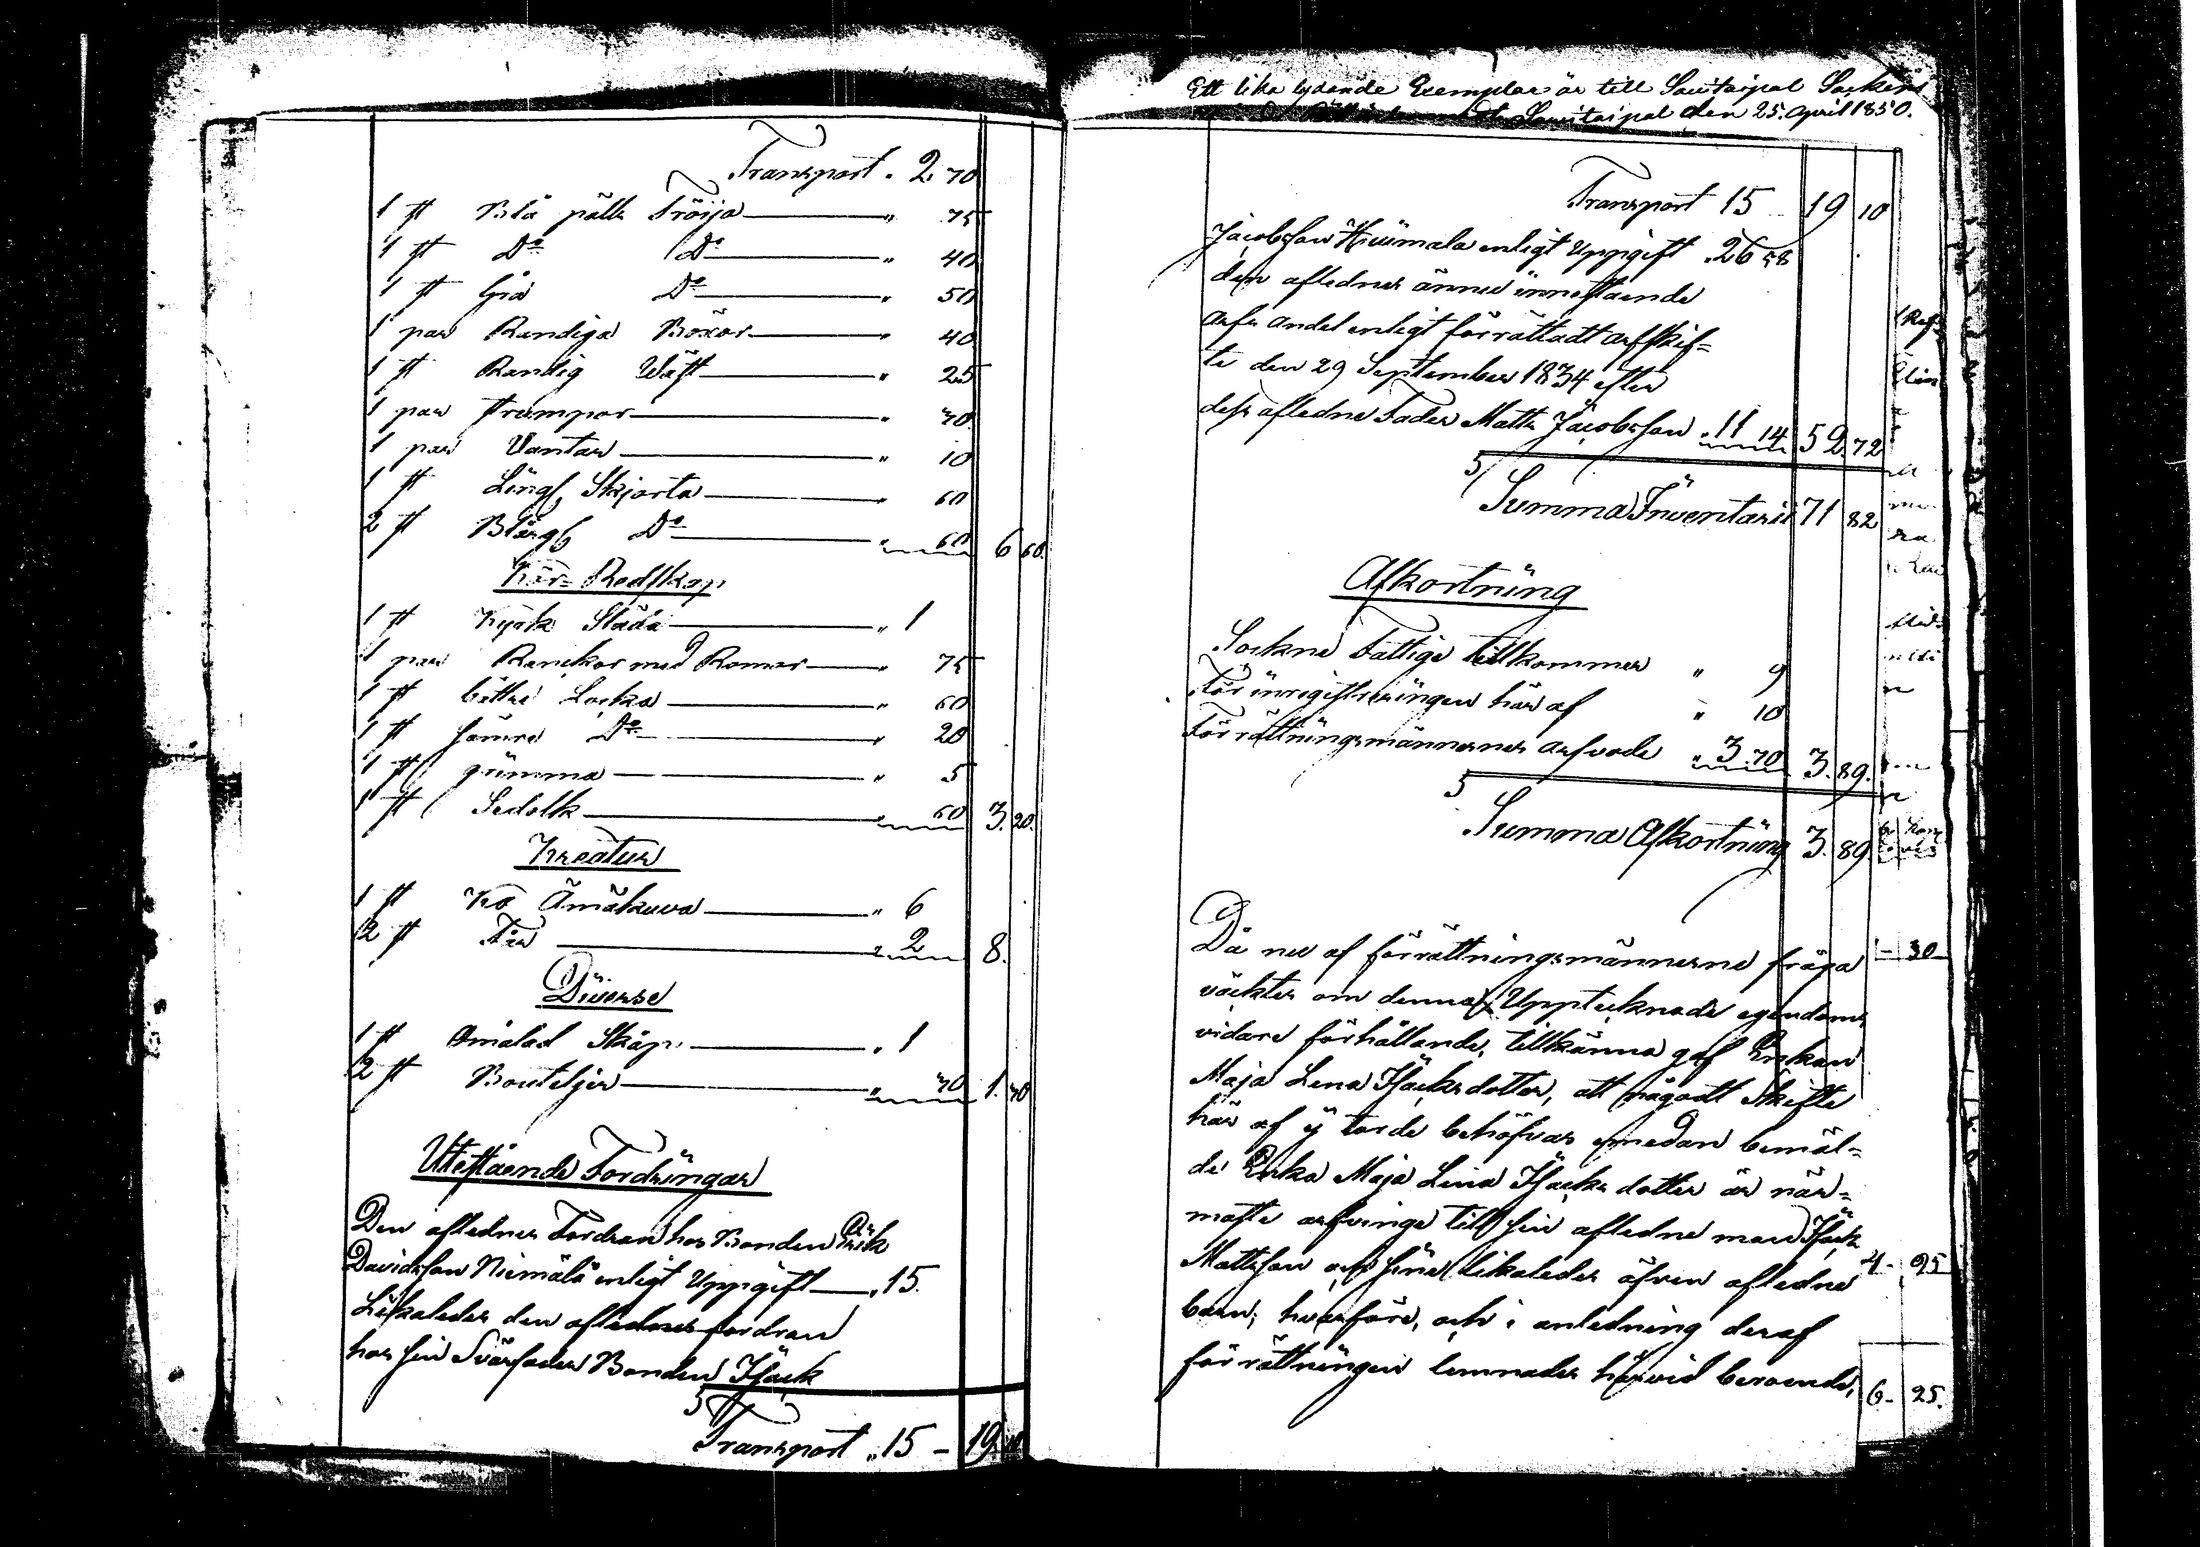 Transport . 2 70
1 st Blå pålls Tröija " 75
1 st Do Do " 40
1 st Grå Do " 50
1 par Randiga Böxor " 40
1 st Randig Wäst " 25
1 par strumpor " 30
1 par Vantar " 10
1 st Lings Skjorta " 60
2 st Blårgs Do " 60 6 60.
Kör-Redskap
1 st Kyrk Släda " 1
1 par Ranckor med Romar " 75
1 st bättre Locka " 60
1 st sämre Do " 20
1 st grimma " 5
1 st Sedolk " 60 3. 20.
Kreatur
1 st Ko Ämäkuva " 6
2 st Får " 2 8.
Diverse
1 st Omålad Skåp " 1
2 st Bouteljer " 30 1. 30
Utestående Fordringar
Den aflednes Fordran hos Bonden Erik
Davidsson Niemälä enligt Uppgift " 15.
Likaledes den aflednes fordran
hos sin Svärfader Bonden Isack
Transport " 15 – 19. 10
Ett lika lydande Exemplar är till Savitaipal Sockens
Savitaipal den 25. April 1850.
Transport 15 19 10
Jacobsson Huumala enligt Uppgift . 26 58
den aflednes ännu innestaende
arfs andel enligt förrättadt arfskif=
te den 29 September 1834 efter
dess afledne Fader Matts Jacobsson . 11 14 52. 72
Summa Inventarii 71 82
Afkortning
Sockne Fattige tillkommer " 9
För inregistreringen här af " 10
Förrättningsmännernes arfvode " 3 70 3. 89.
Summa Afkortning 3. 89
Då nu af förrättningsmännerne fråga
väcktes om denna Upptecknade egendoms
vidare förhållande, tillkänna gaf Enkan
Maja Lena Isacksdotter, att någodt skifte
här af ej torde behöfvas emedan bemäl=
de Enka Maja Lena Isacks dotter är när=
maste arfvinge till sin afledne man Isack
Mattsson och sine likaledes äfven aflednе
barn; hvarföre, och i anledning deraf
förrättningen lemnades härvid beroende,
- 30
4 - 95
6 - 25.